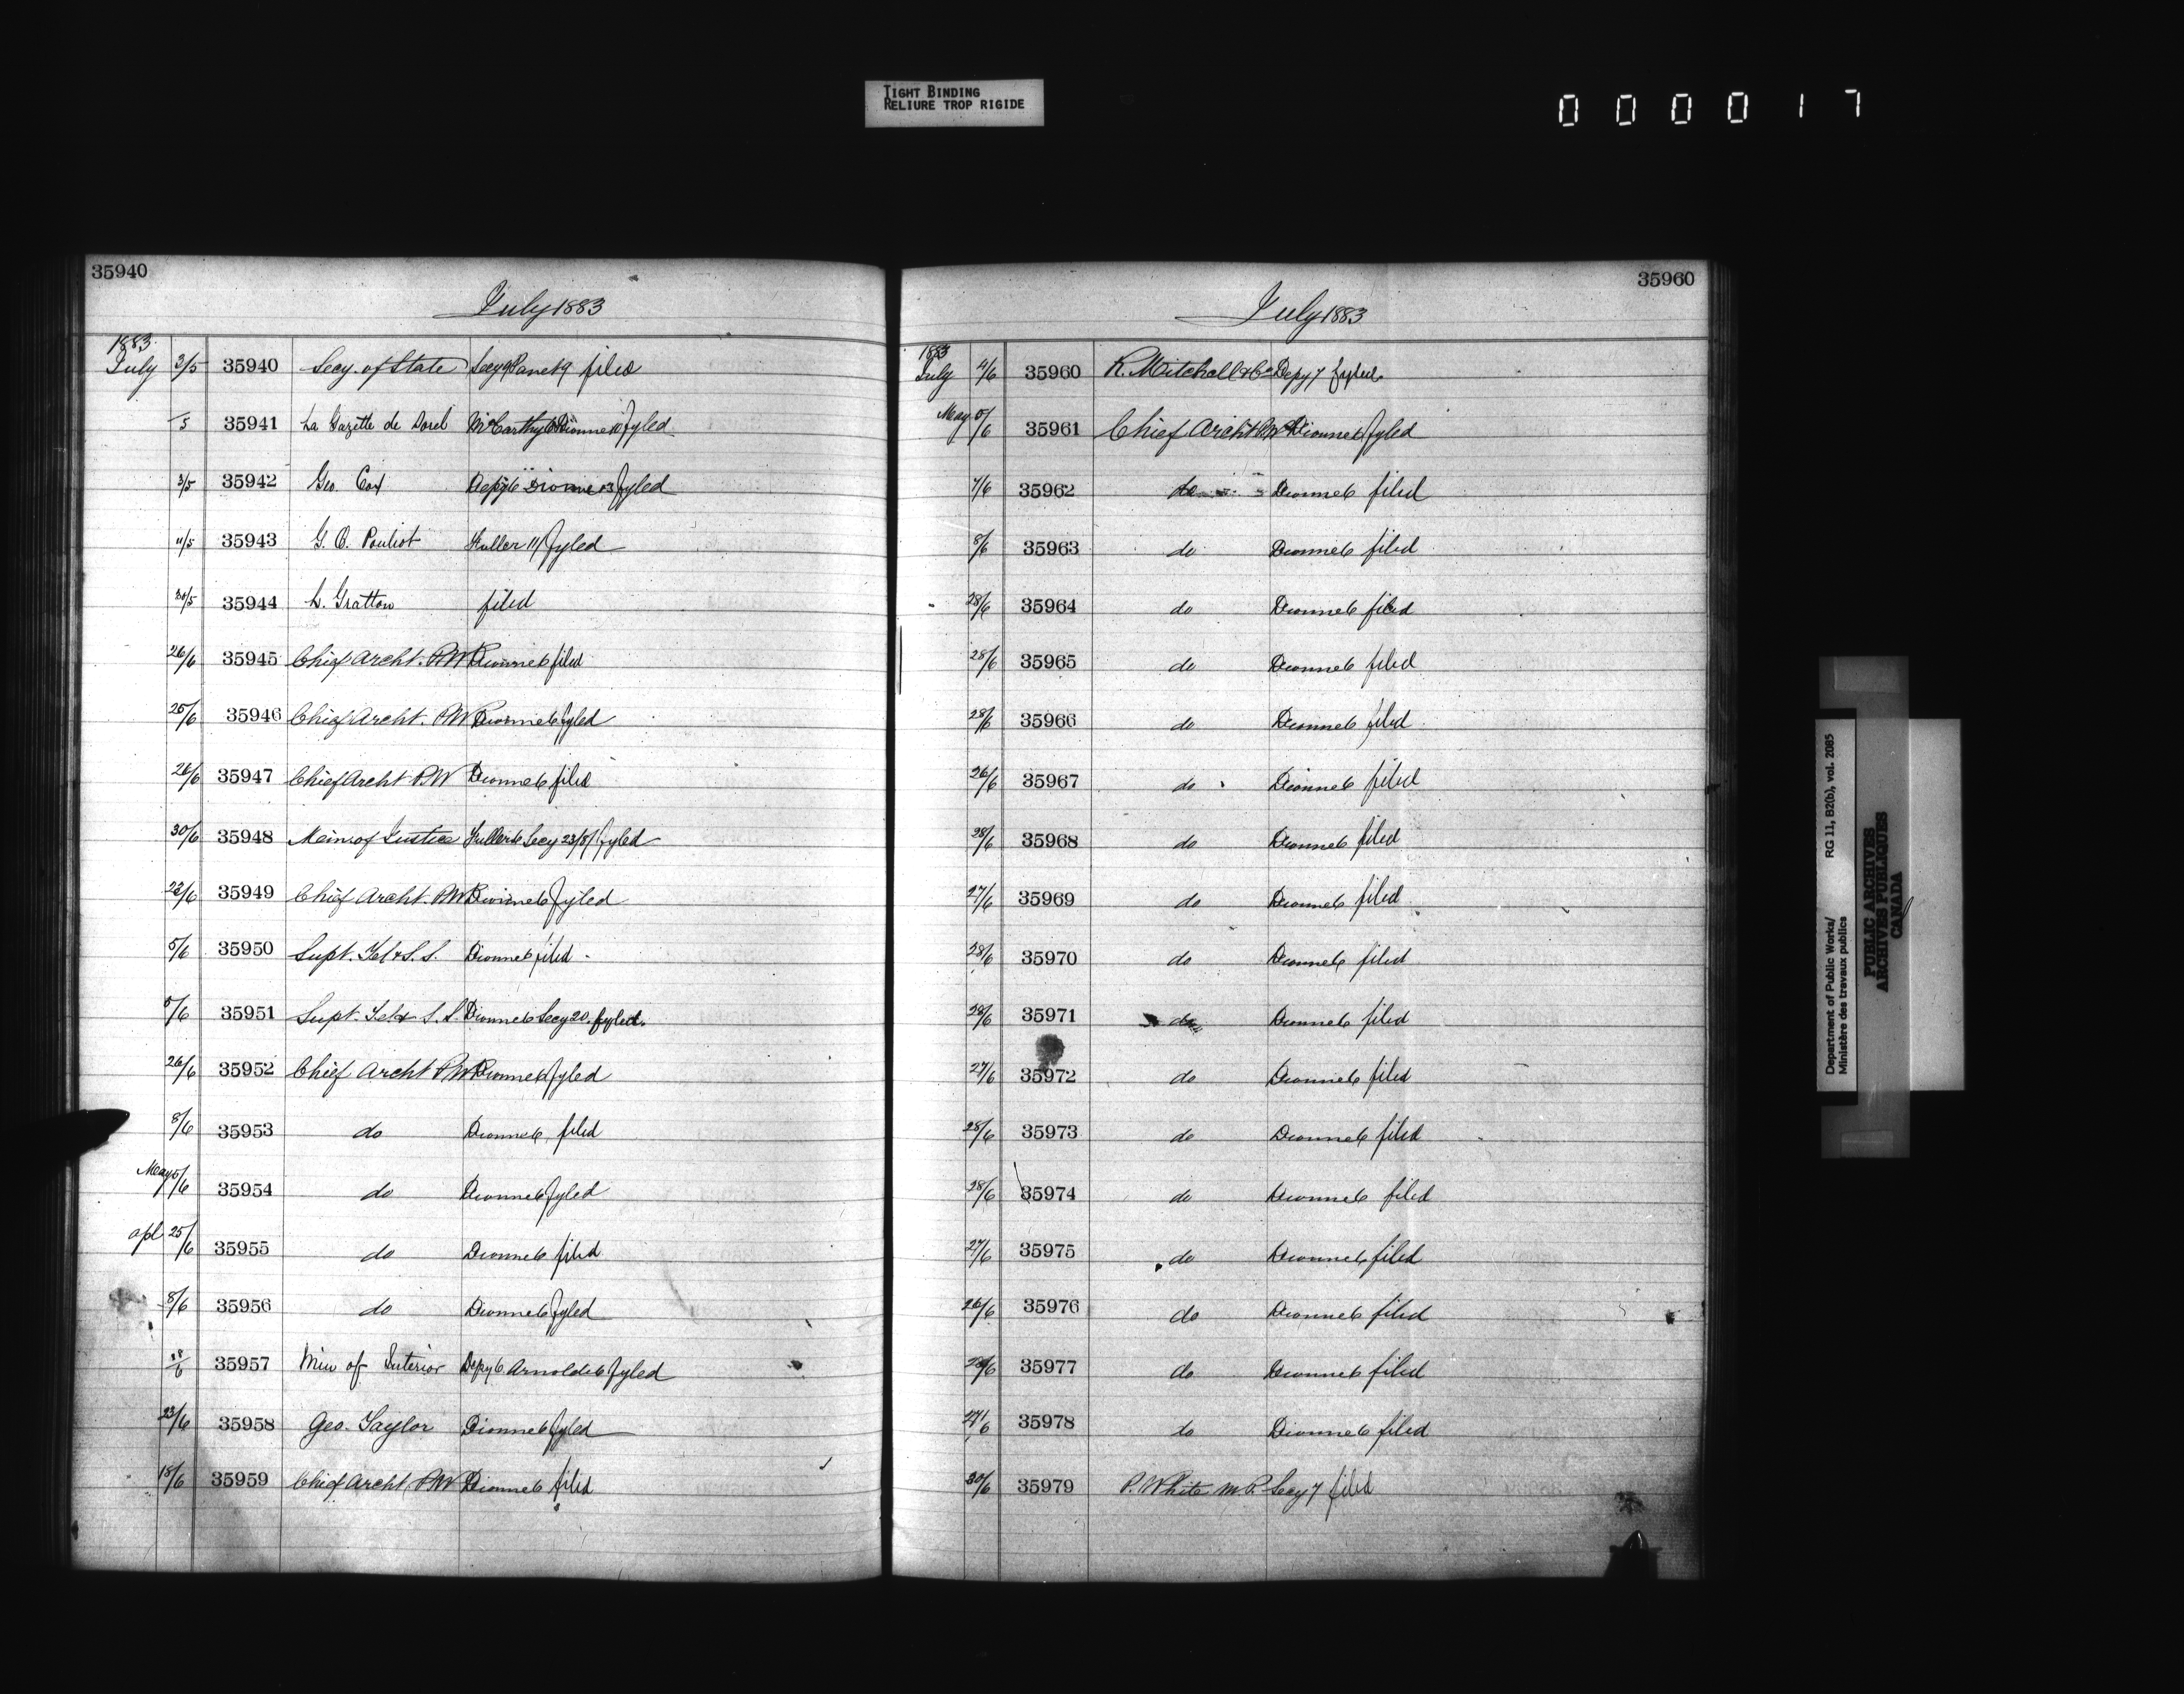 TIGHT BINDING
RELIURE TROP RIGIDE
0 0 0 0 1 7
35940
July 1883
1883
July 3/5 35940 Secy. of State Secy 9 Panet 9 filed
/5 35941 La Gazette de Sorel McCarthy 6 Dionne 11 fyled
3/5 35942 Geo. Cox Depy 6 Dionne 13 fyled
11/5 35943 G. O. Pouliot Fuller 11 fyled
30/5 35944 L. Gratton filed
26/6 35945 Chief Archt. P.W. Dionne 6 filed
25/6 35946 Chief Archt. P.W. Dionne 6 fyled
26/6 35947 Chief Archt P.W Dionne 6 filed
30/6 35948 Min of Justice Fuller 6 Secy 23/8/ fyled
22/6 35949 Chief Archt. P.W. Dionne 6 fyled
5/6 35950 Supt. Tel & S. S. Dionne 6 filed
5/6 35951 Supt. Tel & S. S. Dionne 6 Secy 20. fyled.
26/6 35952 Chief Archt P.W Dionne 6 fyled
8/6 35953 do Dionne 6 filed
May 5/6 35954 do Dionne 6 fyled
apl 25/6 35955 do Dionne 6 filed
8/6 35956 do Dionne 6 fyled
28/6 35957 Min of Interior Depy 6 Arnoldi 6 fyled
23/6 35958 Geo. Taylor Dionne 6 fyled
18/6 35959 Chief Archt P.W Dionne 6 filed
35960
July 1883
1883
July 4/6 35960 R. Mitchell & Co Depy 7 fyled.
May 5/6 35961 Chief Archt P.W Dionne 6 fyled
7/6 35962 do Dionne 6 filed
8/6 35963 do Dionne 6 filed
28/6 35964 do Dionne 6 filed
28/6 35965 do Dionne 6 filed
28/6 35966 do Dionne 6 filed
26/6 35967 do Dionne 6 filed
28/6 35968 do Dionne 6 filed
27/6 35969 do Dionne 6 filed
28/6 35970 do Dionne 6 filed
28/6 35971 do Dionne 6 filed
27/6 35972 do Dionne 6 filed
28/6 35973 do Dionne 6 filed
28/6 35974 do Dionne 6 filed
27/6 35975 do Dionne 6 filed
26/6 35976 do Dionne 6 filed
28/6 35977 do Dionne 6 filed
27/6 35978 do Dionne 6 filed
30/6 35979 P. White M.P. Secy 7 filed
Department of Public Works/ RG 11, B2(b), vol. 2085
Ministère des travaux publics
PUBLIC ARCHIVES
ARCHIVES PUBLIQUES
CANADA